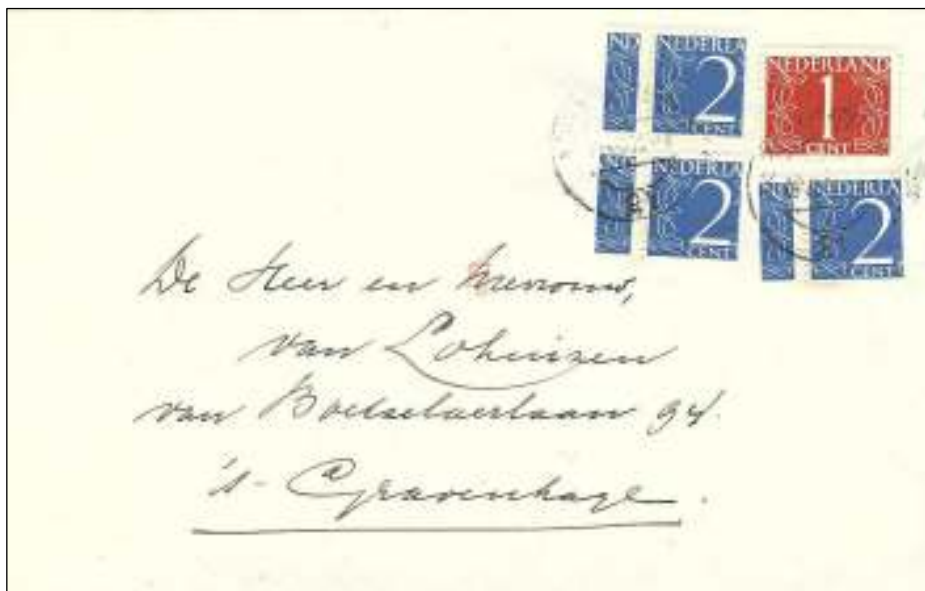 ND NEDERLA
2
CENT
NEDERLAND
1
CENT
ND NEDERLA
2
CENT
ND NEDERLA
2
CENT
De Heer en Mevrouw,
van Lohuizen
van Boetselaerlaan 94.
's-Gravenhage.